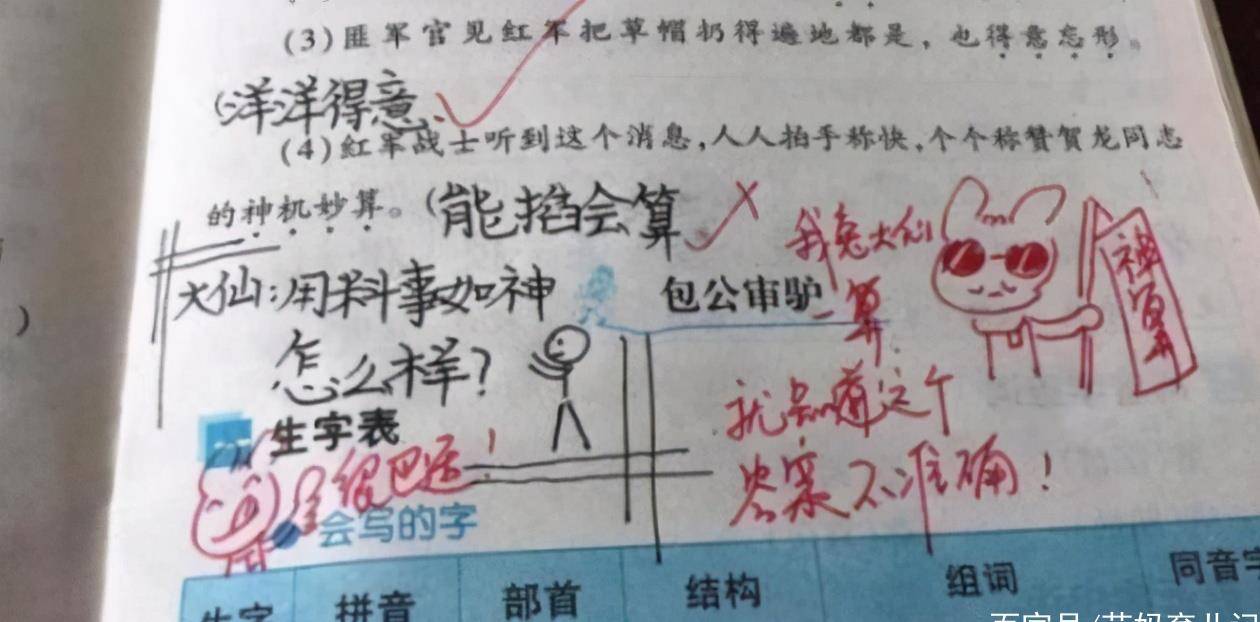 (3)匪军官见红军把草帽扔得遍地都是，也得意忘形。
(洋洋得意
(4)红军战士听到这个消息，人人拍手称快，个个称赞贺龙同志
的神机妙算。(能掐会算
大仙:用料事如神
怎么样?
我兔大仙
一算
就知道这个
答案不准确!
神算
包公审驴
生字表
很巴适!
会写的字
生字 拼音 部首 结构 组词 同音字